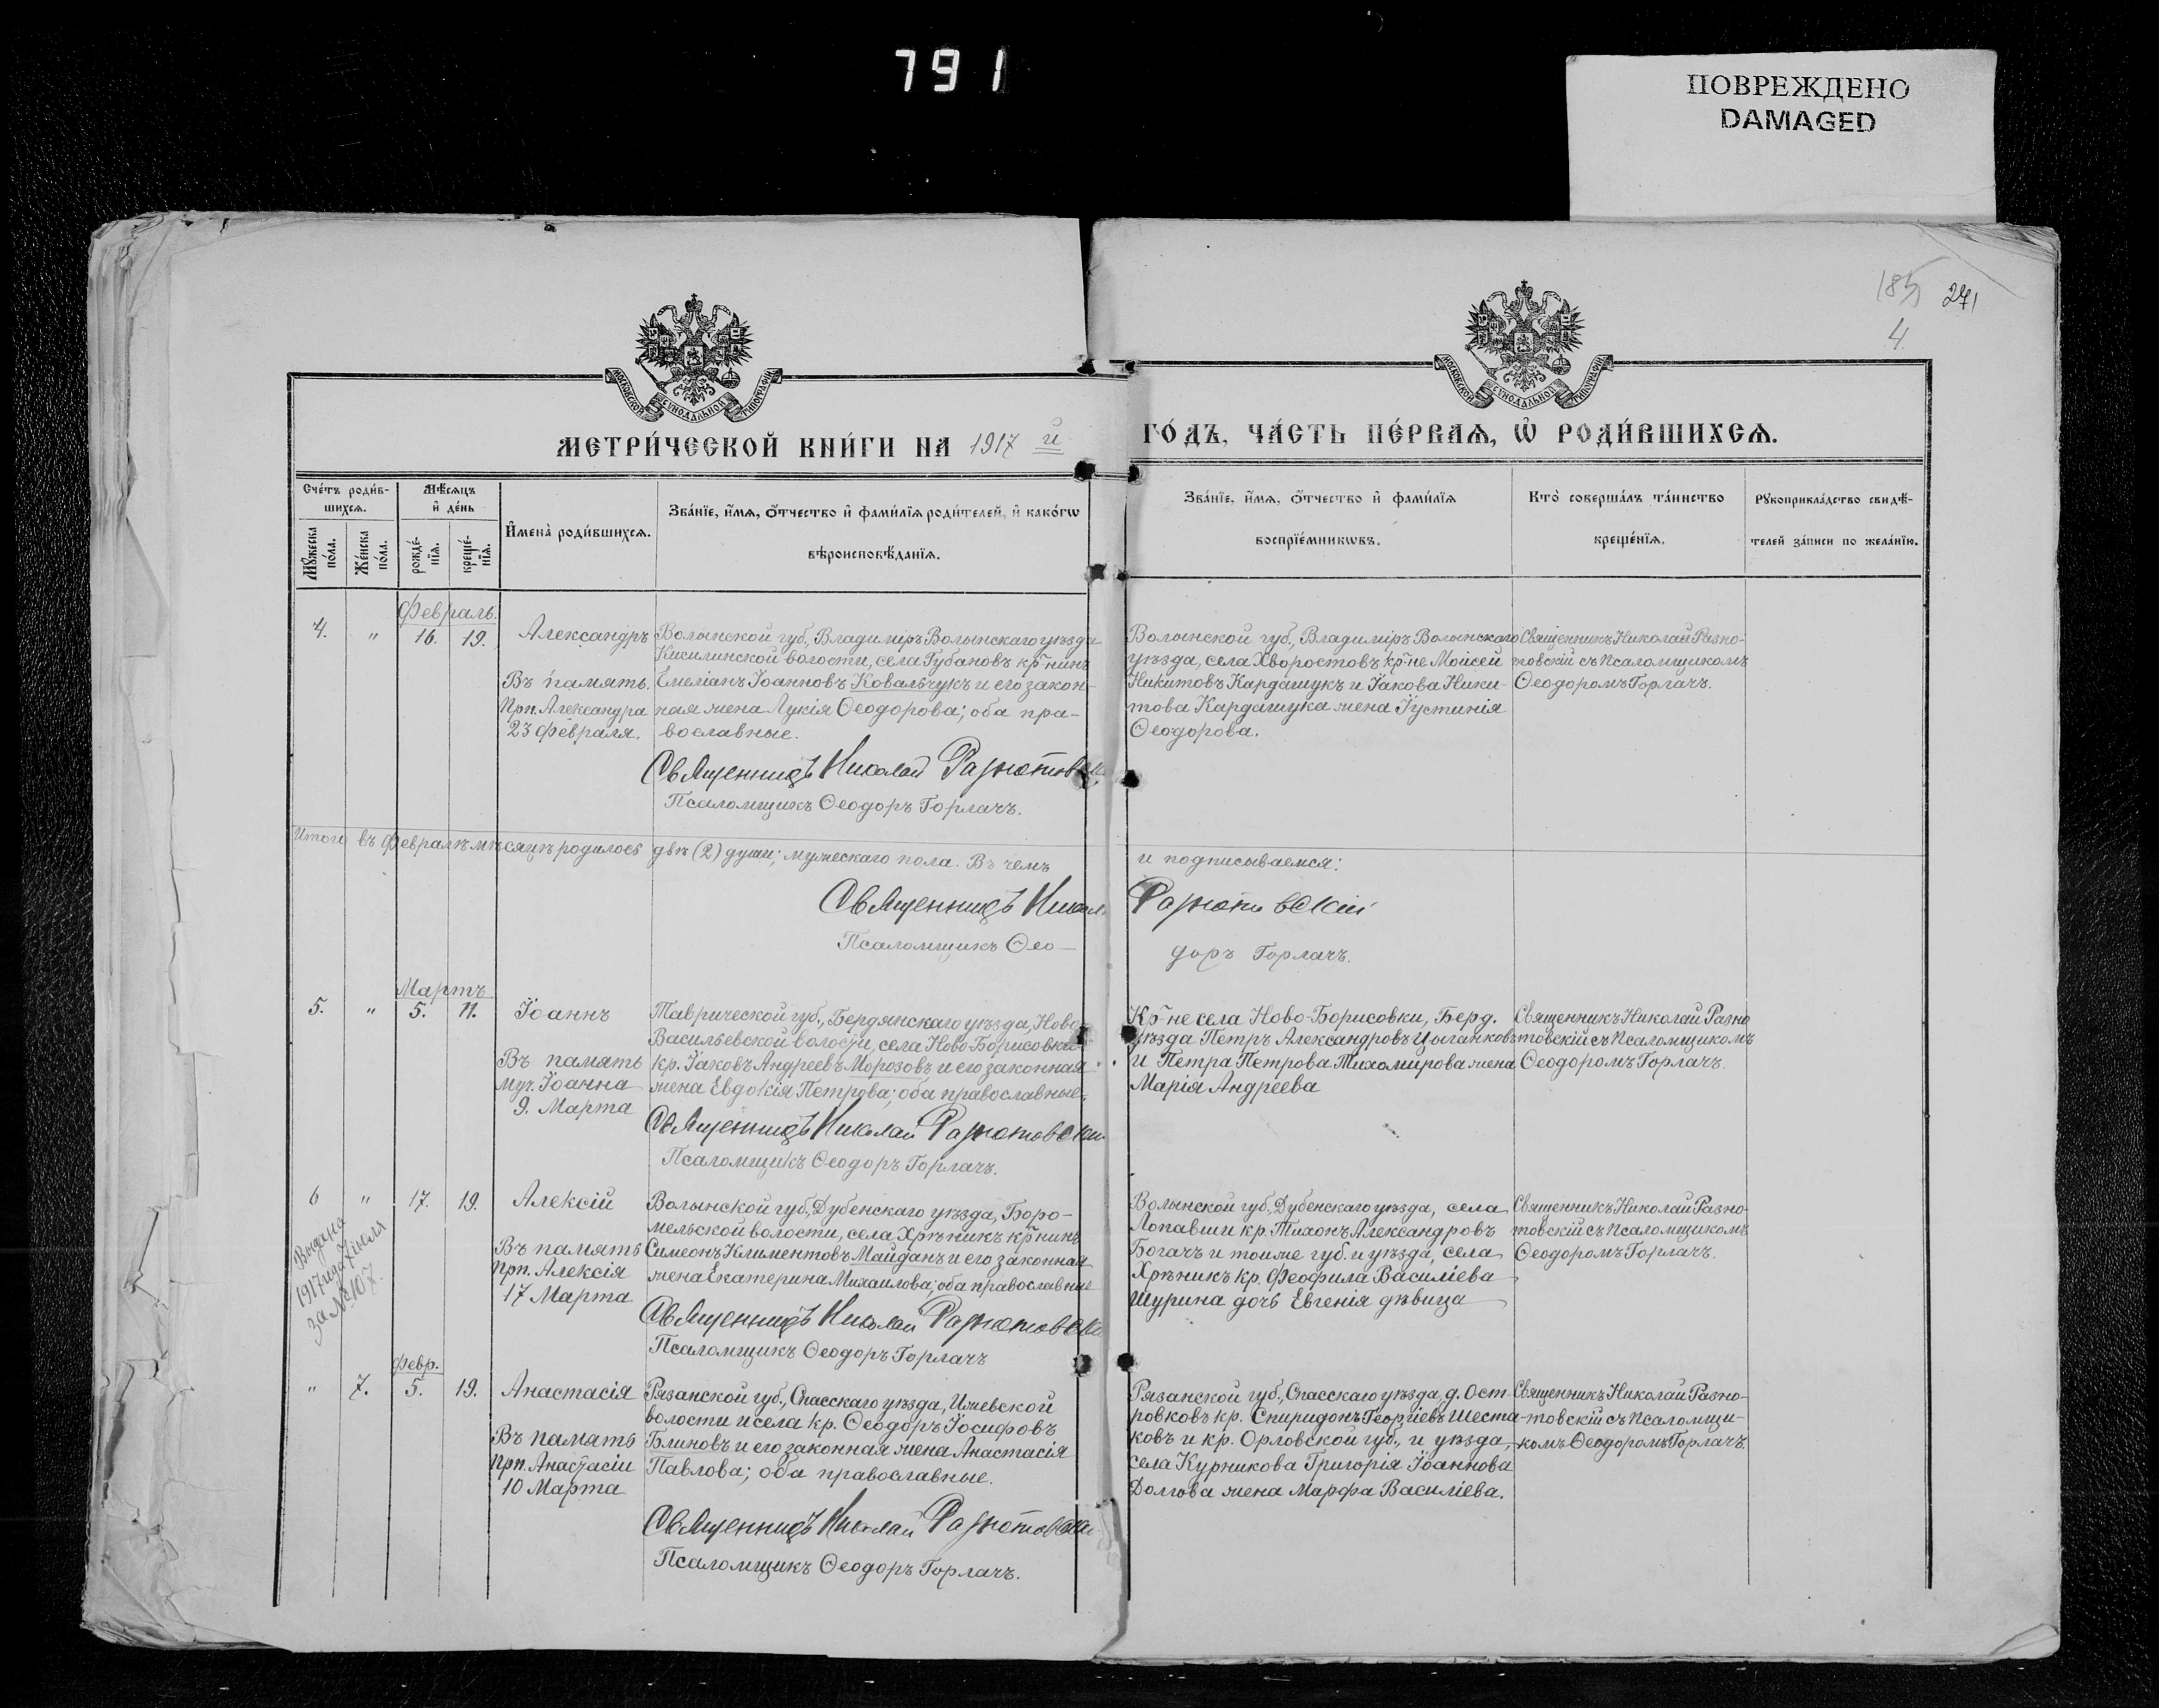 791
ПОВРЕЖДЕНО
DAMAGED
185 271
4
МОСКОВСКОЙ СѴНОДАЛЬНОЙ ТИПОГРАФІИ
МОСКОВСКОЙ СѴНОДАЛЬНОЙ ТИПОГРАФІИ
МЕТРИ́ЧЕСКОЙ КНИ́ГИ НА 1917 й
ГО́ДЪ, ЧА́СТЬ ПЕ́РВАѦ, Ѽ РОДИ́ВШИХСѦ.
Сче́тъ роди́в-
шихсѧ.
Мꙋжеска по́ла.
Же́нска по́ла.
Мѣ́сѧцъ
и҆ де́нь
рожде́-
нїѧ.
креще́-
нїѧ.
И҆мена̀ роди́вшихсѧ.
Зва́нїе, и҆́мѧ, ѻ҆́тчество и҆ фами́лїѧ роди́телей, и҆ како́гѡ
вѣроисповѣ́данїѧ.
Зва́нїе, и҆́мѧ, ѻ҆́тчество и҆ фами́лїѧ
воспрїе́мникѡвъ.
Кто̀ соверша́лъ та́инство
креще́нїѧ.
Рꙋкоприкла́дство свидѣ́-
телей за́писи по жела́нїю.
Февраль.
4. " 16. 19. Александръ
Въ память
Прп. Александра
23 февраля.
Волынской губ., Владиміръ Волынскаго уѣзда
Кисилинской волости, села Губановъ кр-нинъ
Емеліанъ Іоанновъ Ковальчукъ и его закон-
ная жена Лукія Ѳеодорова; оба пра-
вославные.
Священникъ Николай Разнотовскій
Псаломщикъ Ѳеодоръ Горлачъ.
Волынской губ., Владиміръ Волынскаго
уѣзда, села Хворостовъ кр-не Моисей
Никитовъ Кардашукъ и Іакова Ники-
това Кардашука жена Іустинія
Ѳеодорова.
Священникъ Николай Разно-
товскій съ Псаломщикомъ
Ѳеодоромъ Горлачъ.
Итого въ Февралѣ мѣсяцѣ родилось двѣ (2) души; мужескаго пола. Въ чемъ
и подписываемся:
Священникъ Николай Разнотовскій
Псаломщикъ Ѳео-
доръ Горлачъ.
Мартъ
5. " 5. 11. Іоаннъ
Въ память
муч. Іоанна
9. Марта
Таврической губ., Бердянскаго уѣзда, Ново-
Васильевской волости, села Ново-Борисовки
кр. Іаковъ Андреевъ Морозовъ и его законная
жена Евдокія Петрова; оба православные.
Священникъ Николай Разнотовскій
Псаломщикъ Ѳеодоръ Горлачъ.
Кр-не села Ново-Борисовки, Берд.
уѣзда Петръ Александровъ Цыганковъ
и Петра Петрова Тихомирова жена
Марія Андреева
Священникъ Николай Разно
товскій съ Псаломщикомъ
Ѳеодоромъ Горлачъ.
6 " 17. 19. Алексій
Выдана
1917 года Апрѣля
за № 107.
Въ память
прп. Алексія
17 Марта
Волынской губ., Дубенскаго уѣзда, Боро-
мельской волости, села Хрѣникъ кр-нинъ
Симеонъ Климентовъ Майданъ и его законная
жена Екатерина Михаилова; оба православные
Священникъ Николай Разнотовскій
Псаломщикъ Ѳеодоръ Горлачъ
Волынской губ., Дубенскаго уѣзда, села
Лопавши кр. Тихонъ Александровъ
Богачъ и тоиже губ. и уѣзда, села
Хрѣникъ кр. Феофила Василіева
Шурина дочь Евгенія дѣвица
Священникъ Николай Разно-
товскій съ Псаломщикомъ
Ѳеодоромъ Горлачъ.
февр.
" 7. 5. 19. Анастасія
Въ память
прп. Анастасіи
10 Марта
Рязанской губ., Спасскаго уѣзда, Ижевской
волости и села кр. Ѳеодоръ Іосифовъ
Блиновъ и его законная жена Анастасія
Павлова; оба православные.
Священникъ Николай Разнотовскій
Псаломщикъ Ѳеодоръ Горлачъ.
Рязанской губ., Спасскаго уѣзда, д. Ост-
ровковъ кр. Спиридонъ Георгіевъ Шеста-
ковъ и кр. Орловской губ., и уѣзда,
села Курникова Григорія Іоаннова
Долгова жена Марфа Василіева.
Священникъ Николай Разно-
товскій съ Псаломщи-
комъ Ѳеодоромъ Горлачъ.